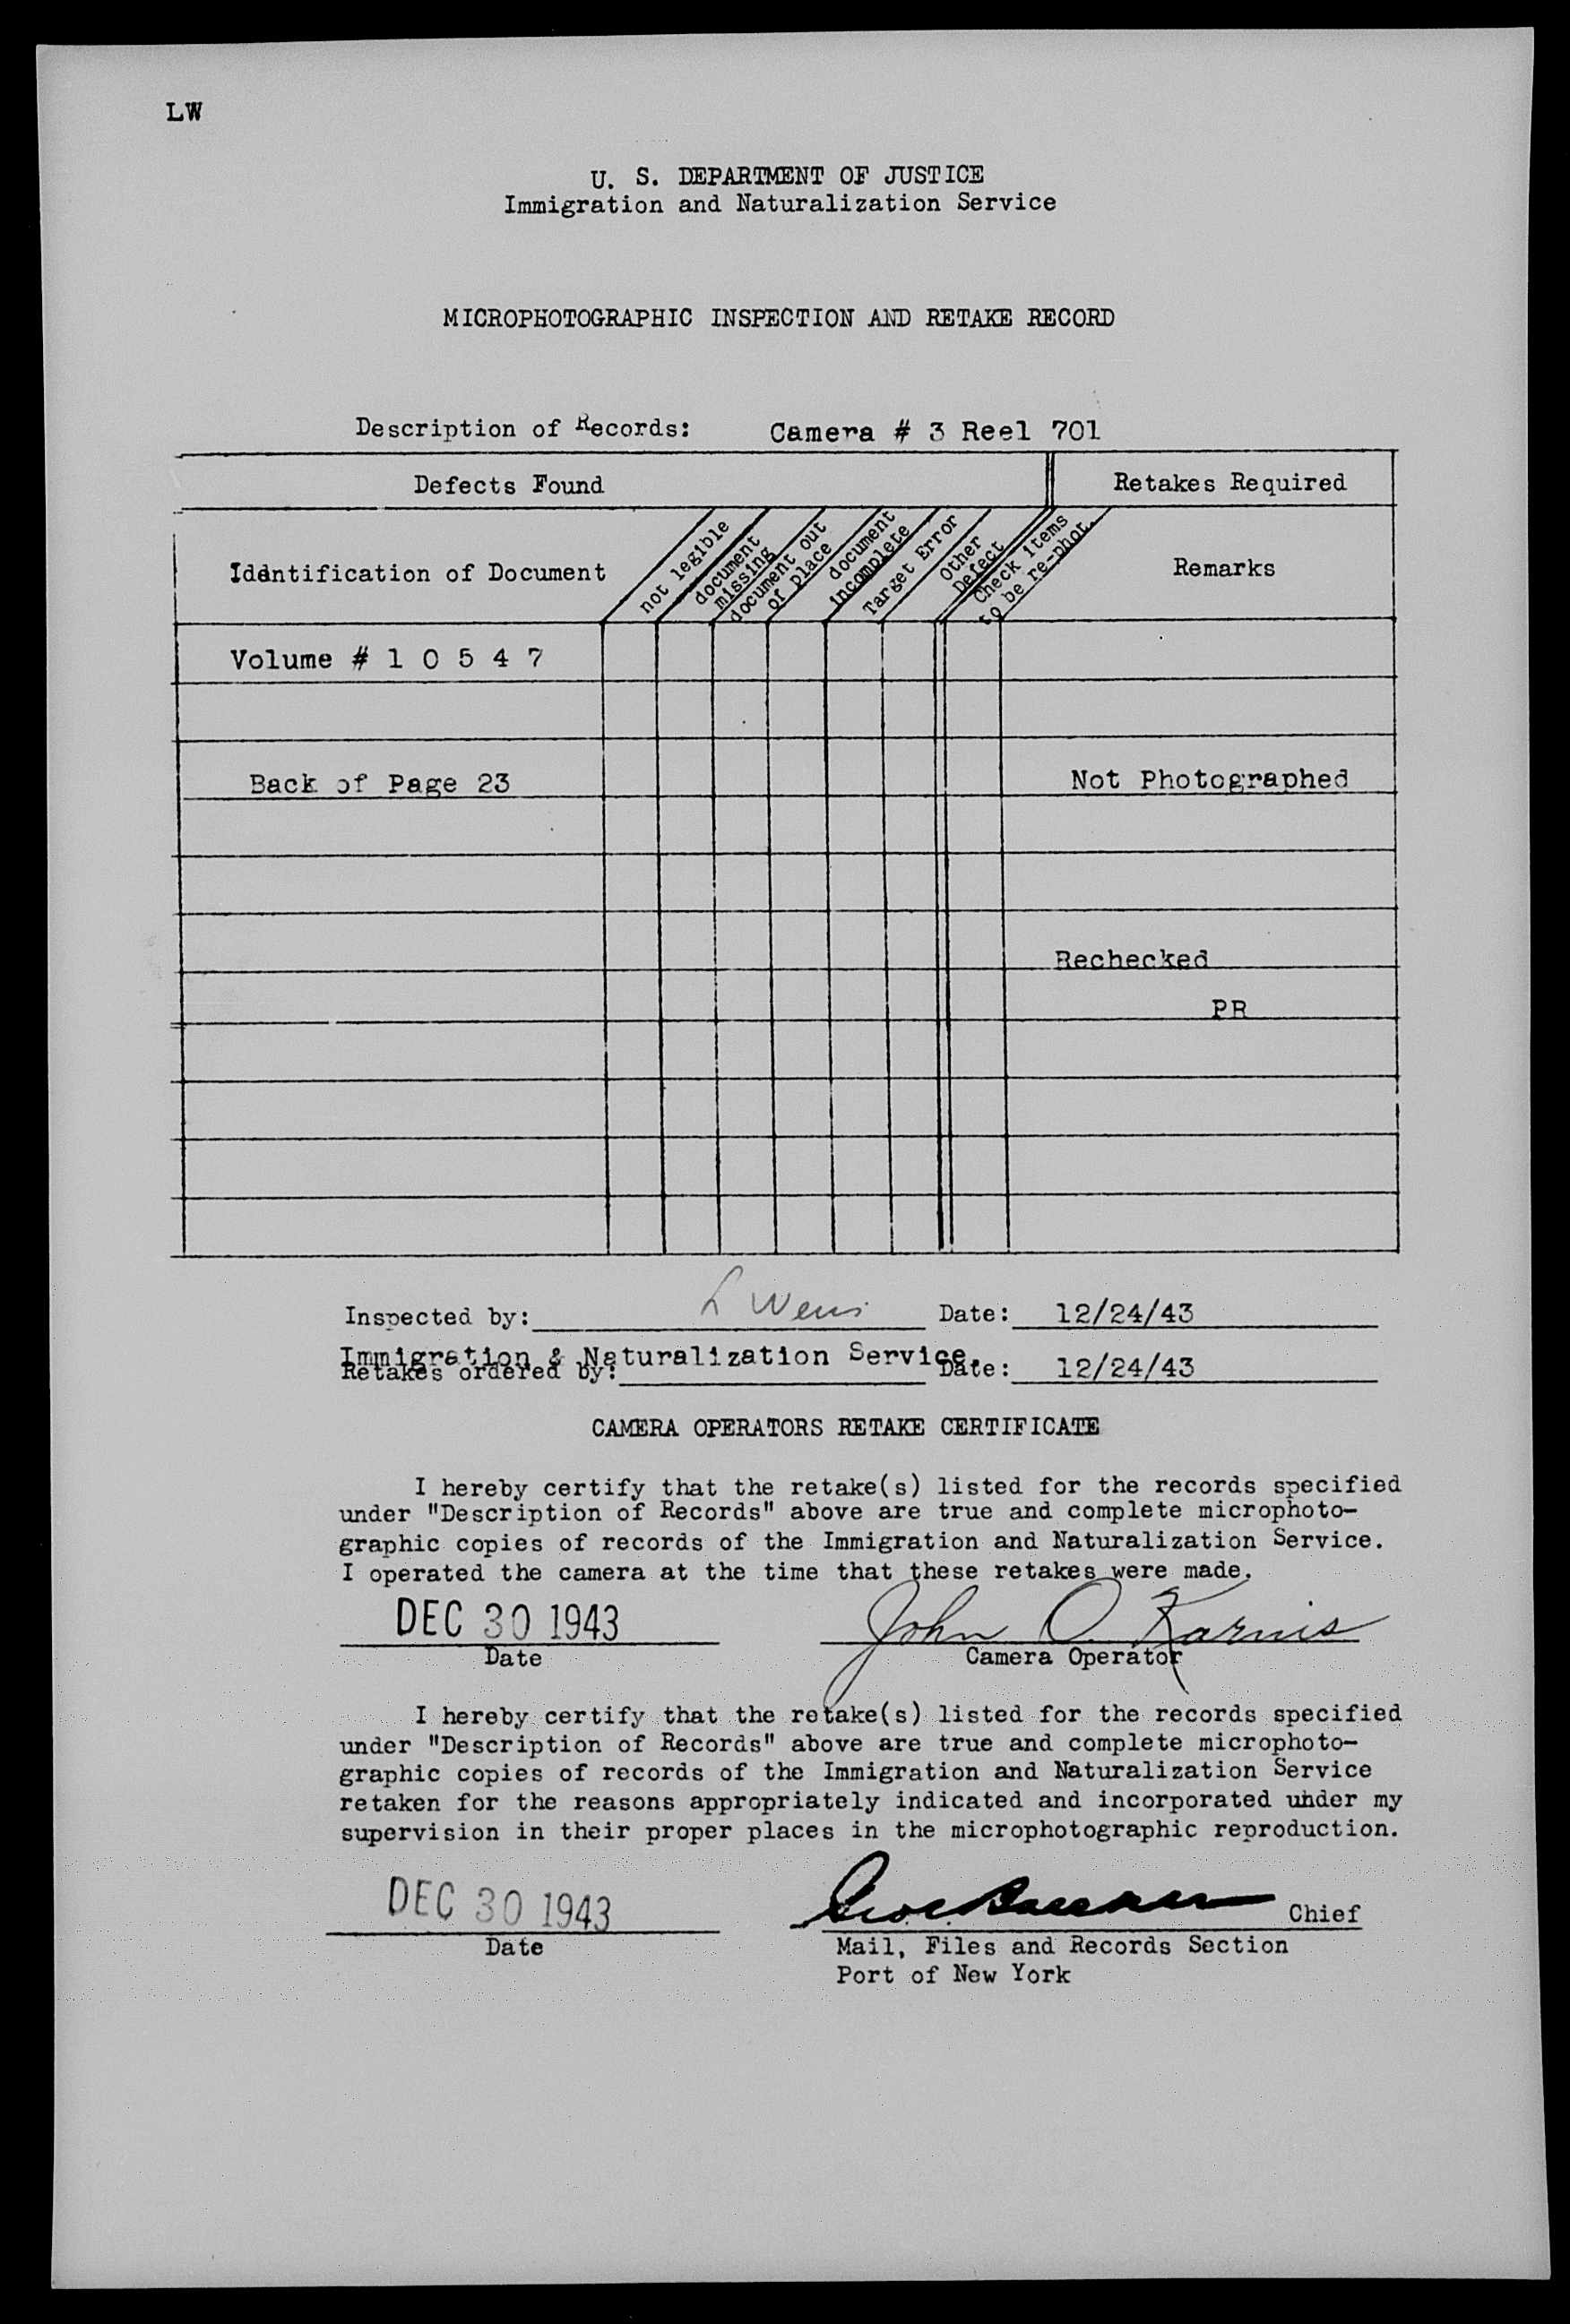 LW
U. S. DEPARTMENT OF JUSTICE
Immigration and Naturalization Service
MICROPHOTOGRAPHIC INSPECTION AND RETAKE RECORD
Description of Records: Camera # 3 Reel 701
Defects Found Retakes Required
Identification of Document
not legible
document
missing
document out
of place
document
incomplete
Target Error
Other
Defect
Check items
to be re-phot.
Remarks
Volume # 1 0 5 4 7
Back of Page 23 Not Photographed
Rechecked
PR
Inspected by: L Date: 12/24/43
Immigration & Naturalization Service.
Retakes ordered by: Date: 12/24/43
CAMERA OPERATORS RETAKE CERTIFICATE
I hereby certify that the retake(s) listed for the records specified
under "Description of Records" above are true and complete microphoto-
graphic copies of records of the Immigration and Naturalization Service.
I operated the camera at the time that these retakes were made.
DEC 30 1943 John O. Karnis
Date Camera Operator
I hereby certify that the retake(s) listed for the records specified
under "Description of Records" above are true and complete microphoto-
graphic copies of records of the Immigration and Naturalization Service
retaken for the reasons appropriately indicated and incorporated under my
supervision in their proper places in the microphotographic reproduction.
DEC 30 1943 Chief
Date Mail, Files and Records Section
Port of New York